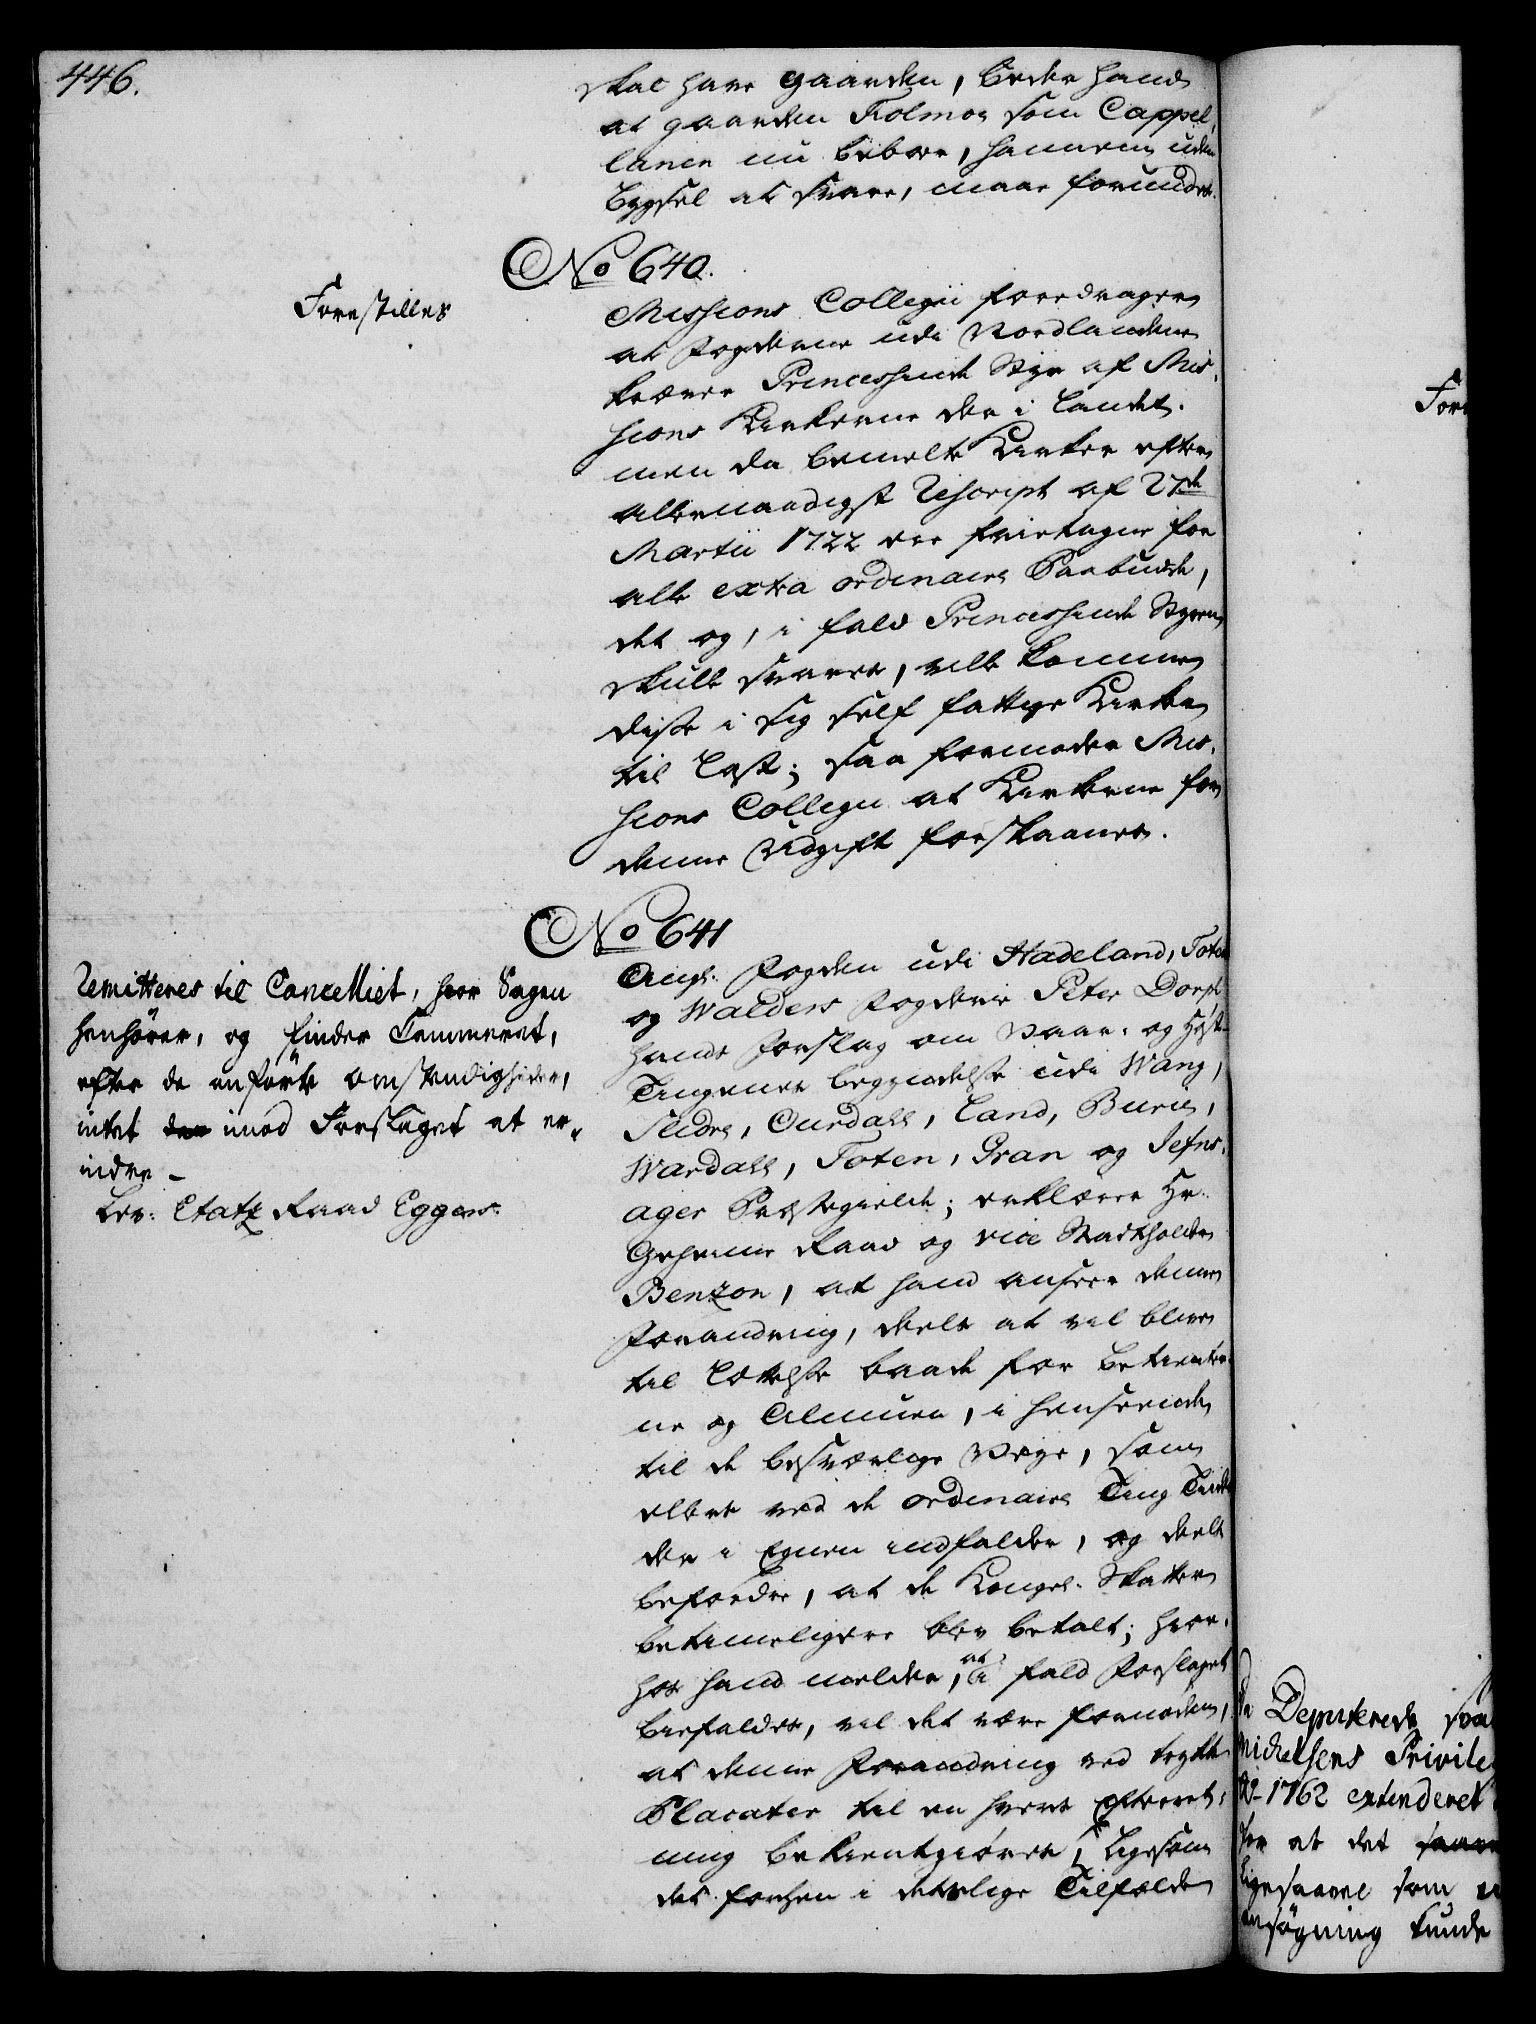 446.
skal have gaarden, beder hand
at gaarden Folmoe som Cappel,
lanen nu beboer, hannem uden
Bygsel at svare, maae forundes.
No 640.
Forestilles
Missions Collegii foredrager
at Fogderne udi Nordlandene
kræver Princessinde Styr af Mis,
sions Kirkerne der i landet.
men da bemelte Kirker efter
allernaadigst Rescript af 27de
Martii 1722 ere fritagne for
alle extra ordinaire Paabudde,
det og, i fald Princessinde Styren
skulle svares, ville komme
disse i sig self fattige Kirker
til Last; saa formoder Mis,
sions Collegii at Kirkerne for
denne Udgift forskaanes.
No 641
Remitteres til Cancelliet, hvor Sagen
henhører, og finder Cammeret,
efter de anførte omstændigheder,
intet der imod Forslaget at er,
indre.
Lev: Etatz Raad Eggers.
Angl: Fogden udi Hadeland, Toten
og Walders Fogderie Peter Dorph
hands Forslag om Vaar- og Høst-
Tingenes begyndelse udi Wang,
Slidre, Ourdahl, Land, Burie,
Wardahl, Toten, Gran og Jefns,
ager Præstegielde; erklærer Hr.
Geheime Raad og vice Statholder
Benzon, at hand anseer denne
Forandring, deels at vil blive
til Lættelse baade for betiente
ne og Almuen, i henseende
til de besværlige Veye, som
ellers ved de ordinaire Ting Tiider
der i Egnen indfalder, og deels
befordre, at de Kongel. Skatter
betimeligere blev betalt; hvor,
hos hand melder, at i fald Forslaget
biefaldes, vil det være fornøden,
at denne Forandring ved trykte
Placater til en hvers Efterret,
ning bekientgiøres, ligesom
det forhen i deslige Tilfælde
For
Da Deputerede
Michelsens Privile
Ao 1762 extenderet
for at det
ligesaavel som
ansøgning kunde